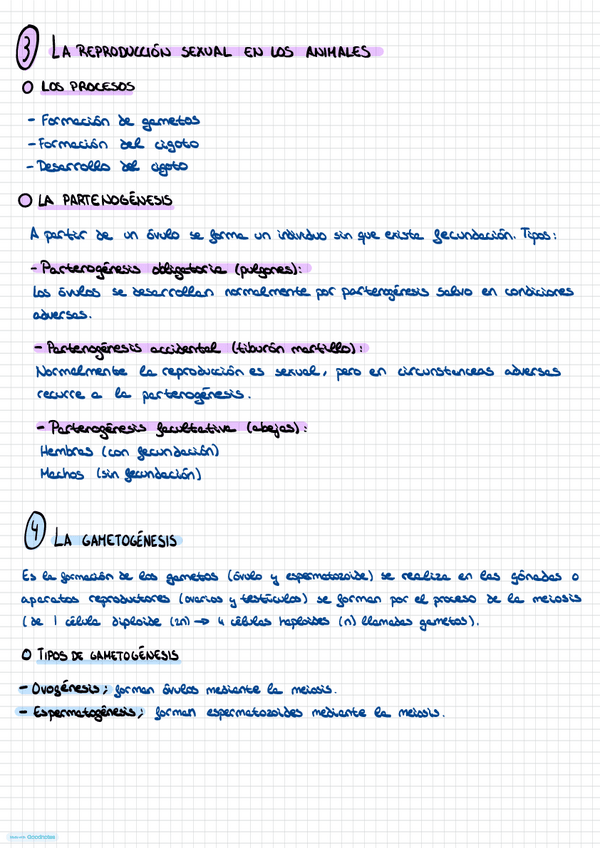 3 LA REPRODUCCIÓN SEXUAL EN LOS ANIMALES
LOS PROCESOS
- Formación de gametos
- Formación del cigoto
- Desarrollo del cigoto
LA PARTENOGÉNESIS
A partir de un óvulo se forma un individuo sin que exista fecundación. Tipos:
- Partenogénesis obligatoria (pulgones):
Los óvulos se desarrollan normalmente por partenogénesis salvo en condiciones
adversas.
- Partenogénesis accidental (tiburón martillo):
Normalmente la reproducción es sexual, pero en circunstancias adversas
recurre a la partenogénesis.
- Partenogénesis facultativa (abejas):
Hembras (con fecundación)
Machos (sin fecundación)
4 LA GAMETOGÉNESIS
Es la formación de los gametos (óvulo y espermatozoide) se realiza en las gónadas o
aparatos reproductores (ovarios y testículos) se forman por el proceso de la meiosis
(de 1 célula diploide (2n) → 4 células haploides (n) llamadas gametos).
TIPOS DE GAMETOGÉNESIS
- Ovogénesis; forman óvulos mediante la meiosis.
- Espermatogénesis; forman espermatozoides mediante la meiosis.
Goodnotes